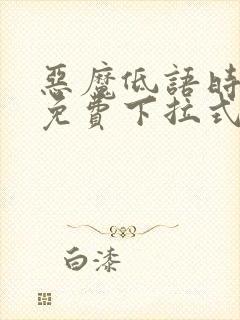 惡魔低語時
免費下拉式
白漆